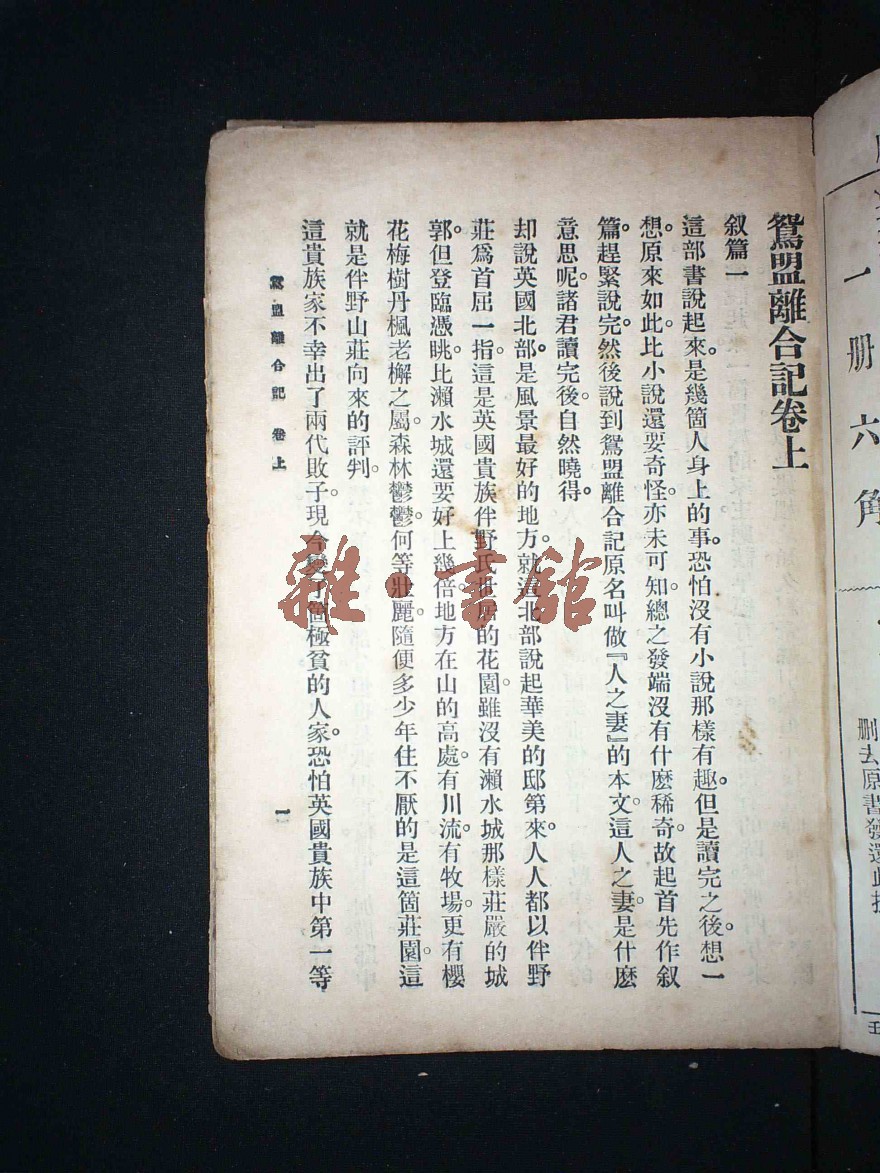 鴛盟離合記卷上
叙篇一
這部書說起來。是幾箇人身上的事。恐怕沒有小說那樣有趣。但是讀完之後。想一
想。原來如此。比小說還要奇怪。亦未可知。總之發端沒有什麼稀奇。故起首先作叙
篇。趕緊說完。然後說到鴛盟離合記原名叫做『人之妻』的本文。這人之妻。是什麼
意思呢。諸君讀完後。自然曉得。
却說英國北部。是風景最好的地方。就這北部說起華美的邸第來。人人都以伴野
莊爲首屈一指。這是英國貴族伴野氏世居的花園。雖沒有瀨水城那樣莊嚴的城
郭。但登臨憑眺。比瀨水城還要好上幾倍。地方在山的高處。有川流。有牧場。更有櫻
花梅樹丹楓老檞之屬。森林鬱鬱。何等壯麗。隨便多少年住不厭的是這箇莊園。這
就是伴野山莊向來的評判。
這貴族家不幸出了兩代敗子。現今變了箇極貧的人家。恐怕英國貴族中第一等
鴛盟離合記 卷上
一
雜·書館
一册六角
删去原書發還此